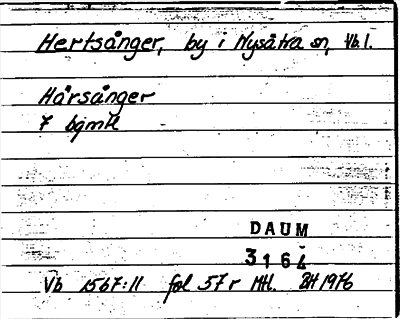 Hertsånger, by i Nysätra sn, Vb. l.
Hårsånger
7 bgmtl
DAUM
3164
Vb 1567:11 fol 57 r Mtl. BH 1976